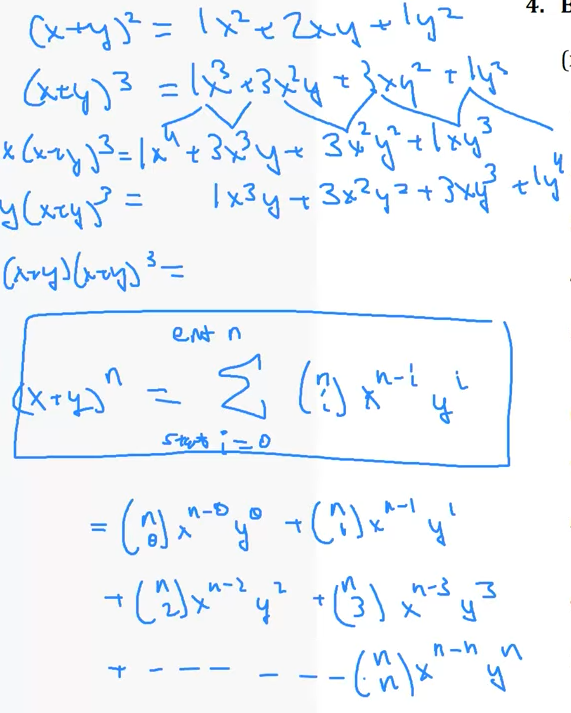 4. E
(x+y)² = 1x² + 2xy + 1y²
(
(x+y)³ = 1x³ + 3x²y + 3xy² + 1y³
x(x+y)³ = 1x⁴ + 3x³y + 3x²y² + 1xy³
y(x+y)³ = 1x³y + 3x²y² + 3xy³ + 1y⁴
(x+y)(x+y)³ =
end n
(x+y)ⁿ = Σ (n i) xⁿ⁻ⁱ yⁱ
start i=0
= (n 0) xⁿ⁻⁰ y⁰ + (n 1) xⁿ⁻¹ y¹
+ (n 2) xⁿ⁻² y² + (n 3) xⁿ⁻³ y³
+ - - - - - - - (n n) xⁿ⁻ⁿ yⁿ